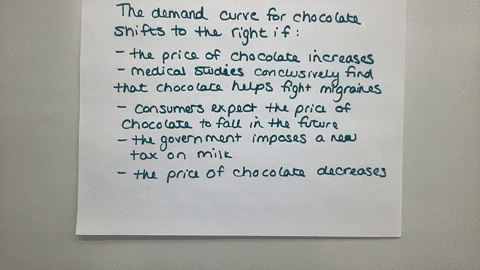 The demand curve for chocolate
shifts to the right if:
- the price of chocolate increases
- medical studies conclusively find
that chocolate helps fight migraines
- consumers expect the price of
chocolate to fall in the future
- the government imposes a new
tax on milk
- the price of chocolate decreases